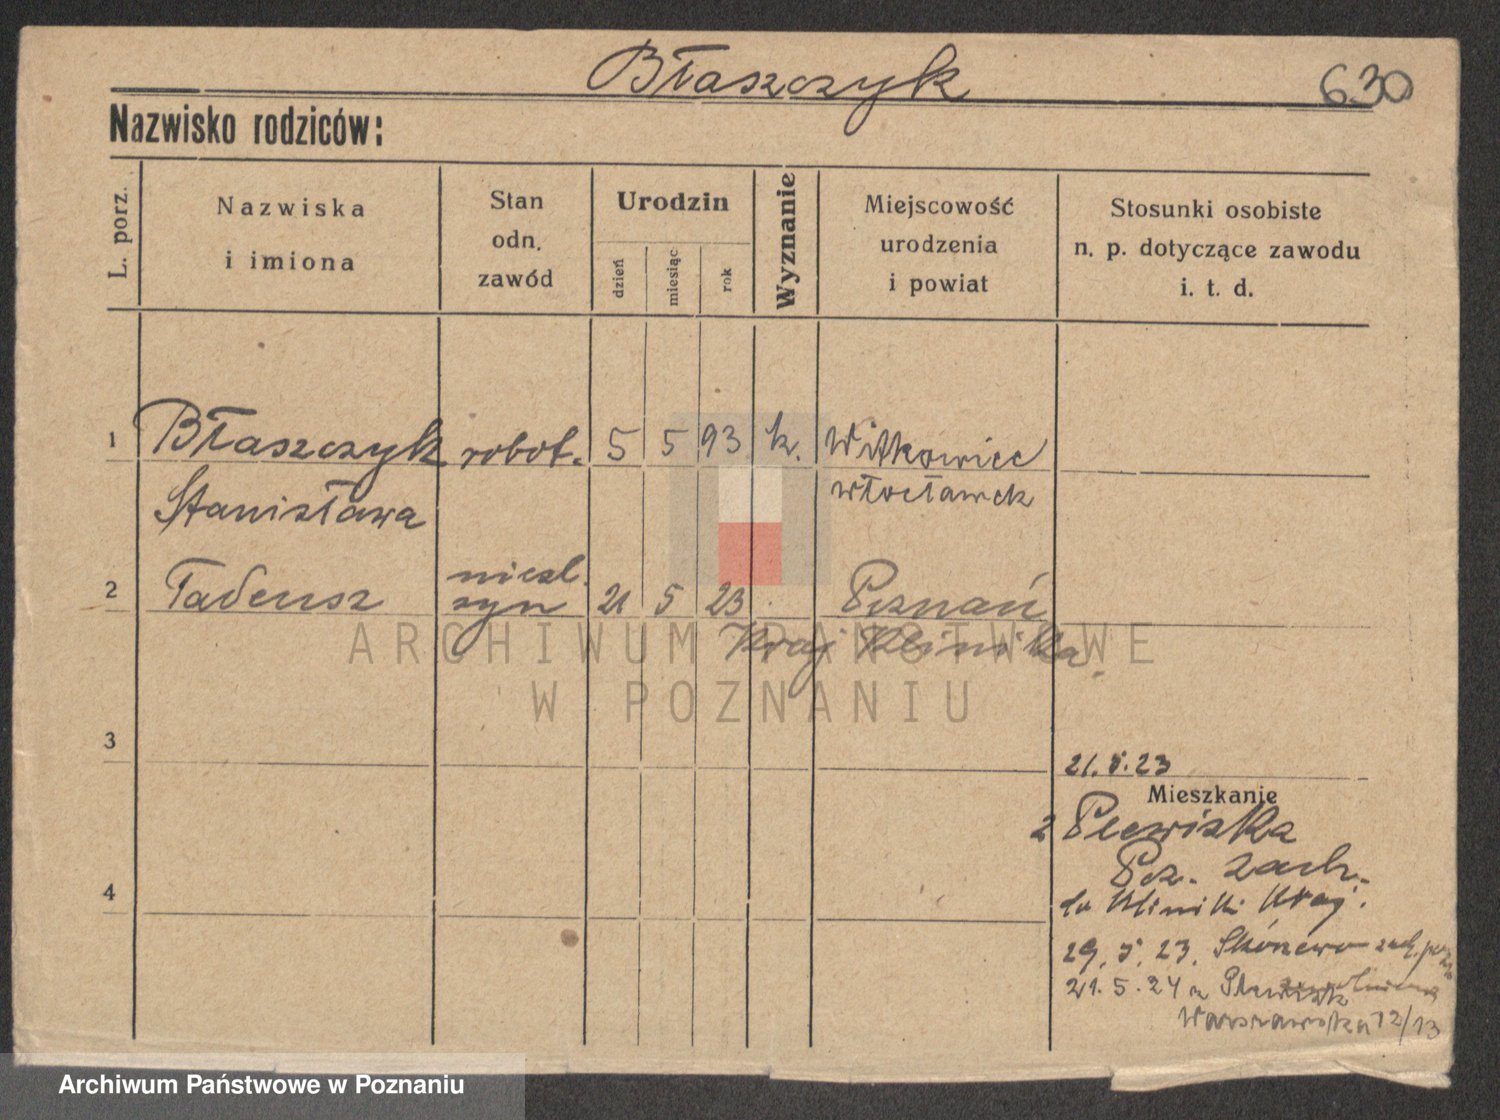 Błaszczyk
630
Nazwisko rodziców:
L. porz.
Nazwiska
i imiona
Stan
odn.
zawód
Urodzin
dzień
miesiąc
rok
Wyznanie
Miejscowość
urodzenia
i powiat
Stosunki osobiste
n. p. dotyczące zawodu
i. t. d.
1 Błaszczyk robot. 5 5 93 k. Witkowiec
Stanisława włocławek
2 Tadeusz nieśl. syn 21 5 23 Poznań
Kraj Klinika
3
21. 5. 23
Mieszkanie
z Plewiska
Pcz. zach.
do Kliniki Kraj.
4
29. 5. 23.
21. 5. 24 z Plewisk
Warszawska 12/13
ARCHIWUM PAŃSTWOWE
W POZNANIU
Archiwum Państwowe w Poznaniu